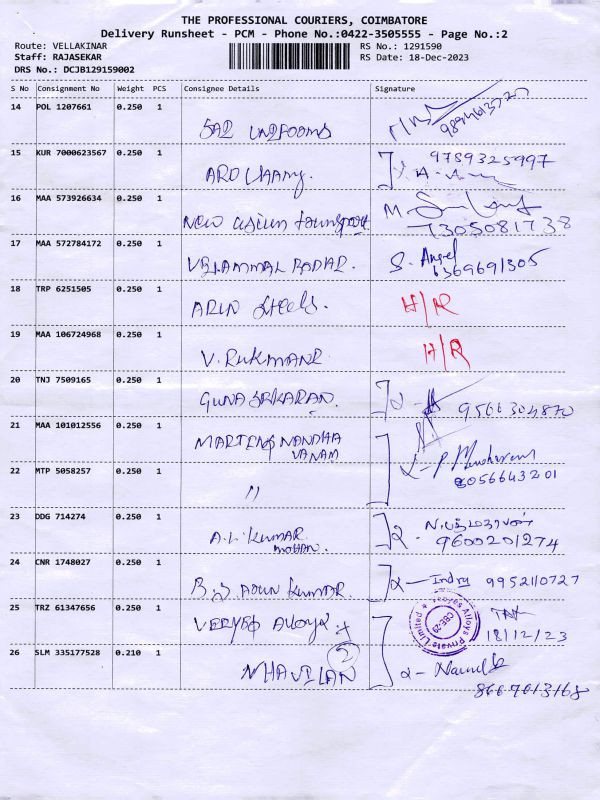 THE PROFESSIONAL COURIERS, COIMBATORE
Delivery Runsheet - PCM - Phone No.:0422-3505555 - Page No.:2
Route: VELLAKINAR RS No.: 1291590
Staff: RAJASEKAR RS Date: 18-Dec-2023
DRS No.: DCJB129159002
S No Consignment No Weight PCS Consignee Details Signature
14 POL 1207661 0.250 1
15 KUR 7000623567 0.250 1 9789325997
16 MAA 573926634 0.250 1 New M.
7305081738
17 MAA 572784172 0.250 1 S. Angel
6369691305
18 TRP 6251505 0.250 1 ARIN Steels. H/R
19 MAA 106724968 0.250 1 V. RUKMANI H/R
20 TNJ 7509165 0.250 1 GUNASEKARAN. 9566304870
21 MAA 101012556 0.250 1 NANDHA
VANAM
22 MTP 5058257 0.250 1 〃 8056643201
23 DDG 714274 0.250 1 A.L. KUMAR
MOHAN. 9600201274
24 CNR 1748027 0.250 1 B.S ARUN KUMAR. Indhu 9952110727
25 TRZ 61347656 0.250 1 Alloys Private Limited CBE-29
18/12/23
26 SLM 335177528 0.210 1 2
8667013168